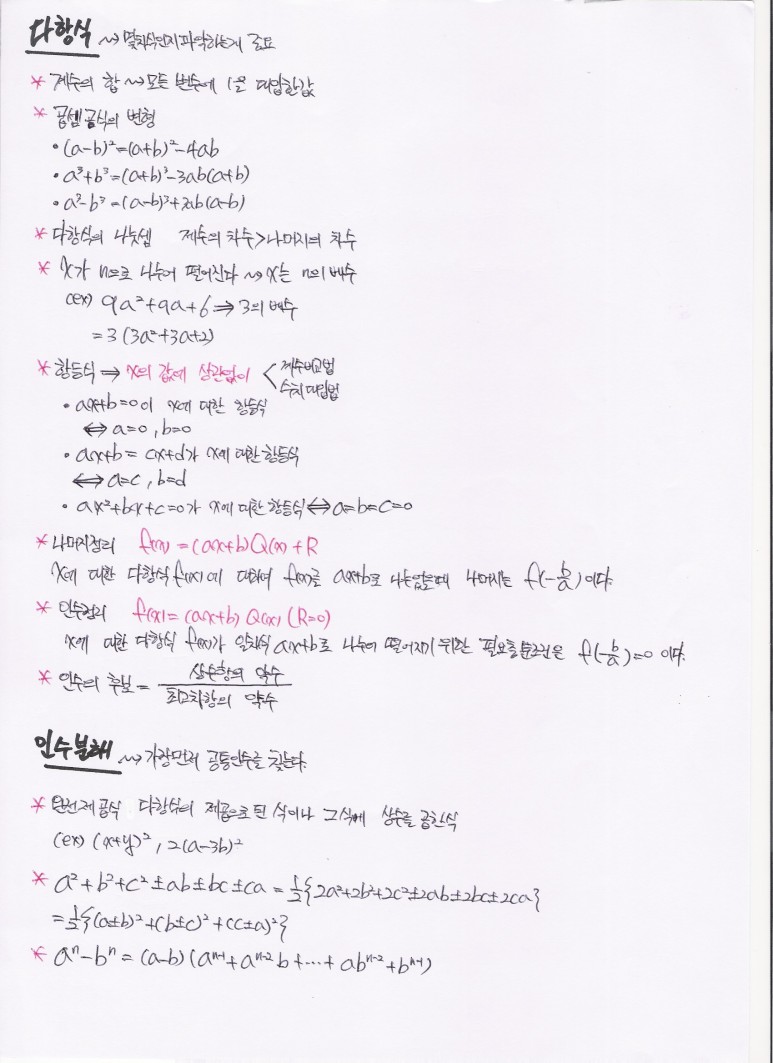 다항식 ⇝ 몇차식인지 파악하는게 중요
* 계수의 합 ⇝ 모든 변수에 1을 대입한값
* 곱셈공식의 변형
• (a-b)²=(a+b)²-4ab
• a³+b³=(a+b)³-3ab(a+b)
• a³-b³=(a-b)³+3ab(a-b)
* 다항식의 나눗셈 제수의 차수>나머지의 차수
* X가 n으로 나누어 떨어진다 ⇝ X는 n의 배수
(ex) 9a²+9a+6 ⇒ 3의 배수
=3(3a²+3a+2)
* 항등식 ⇒ x의 값에 상관없이 < 계수비교법
수치대입법
• ax+b=0이 x에 대한 항등식
⇔ a=0, b=0
• ax+b = cx+d가 x에 대한 항등식
⇔ a=c, b=d
• ax²+bx+c=0가 x에 대한 항등식 ⇔ a=b=c=0
* 나머지정리 f(x) = (ax+b)Q(x)+R
X에 대한 다항식 f(x)에 대하여 f(x)를 ax+b로 나누었을때 나머지는 f(-b/a)이다.
* 인수정리 f(x) = (ax+b) Q(x) (R=0)
X에 대한 다항식 f(x)가 일차식 ax+b로 나누어 떨어지기 위한 필요충분조건은 f(-b/a)=0 이다.
* 인수의 후보 = 상수항의 약수 / 최고차항의 약수
인수분해 ⇝ 가장먼저 공통인수를 찾는다.
* 완전제공식 다항식의 제곱으로 된 식이나 그식에 상수를 곱한식
(ex) (x+y)², 2(a-3b)²
* a²+b²+c²±ab±bc±ca = ½{2a²+2b²+2c²±2ab±2bc±2ca}
=½{(a±b)²+(b±c)²+(c±a)²}
* aⁿ-bⁿ = (a-b)(aⁿ⁻¹+aⁿ⁻²b+⋯+abⁿ⁻²+bⁿ⁻¹)